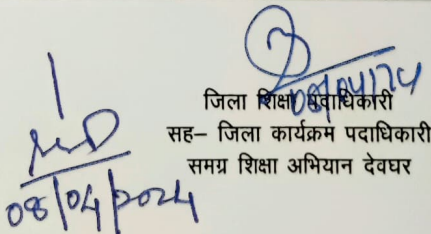 08/04/24
जिला शिक्षा पदाधिकारी
सह– जिला कार्यक्रम पदाधिकारी
समग्र शिक्षा अभियान देवघर
08/04/2024